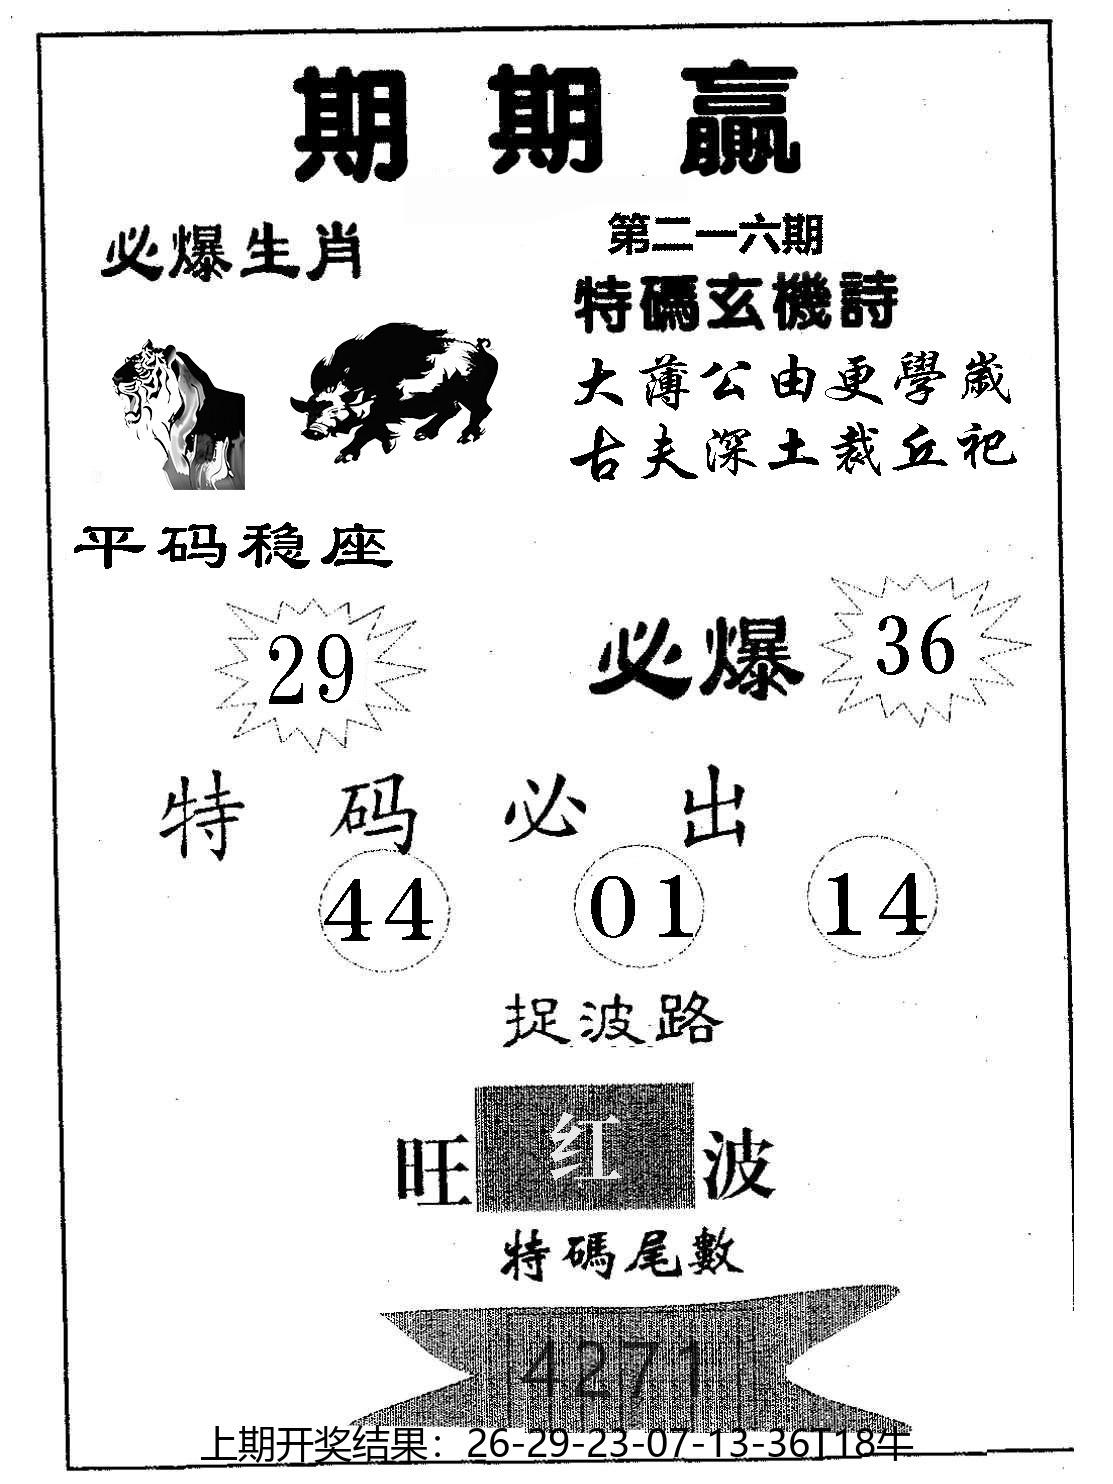 期期贏
必爆生肖
第二一六期
特碼玄機詩
大薄公由更學歲
古夫深土裁丘祀
平码稳座
29
必爆
36
特码必出
44 01 14
捉波路
旺红波
特碼尾數
4271
上期开奖结果：26-29-23-07-13-36T18牛